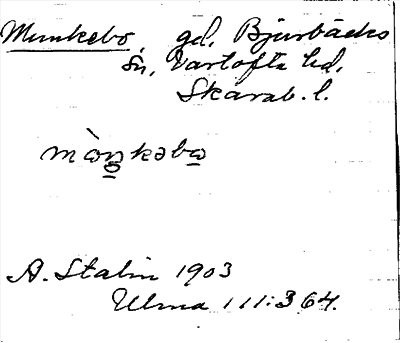 Munkebo, gd, Bjurbäcks
sn, Vartofta hd,
Skarab. l.
mòŋkəbo
A. Stalin 1903
Ulma 111:364.